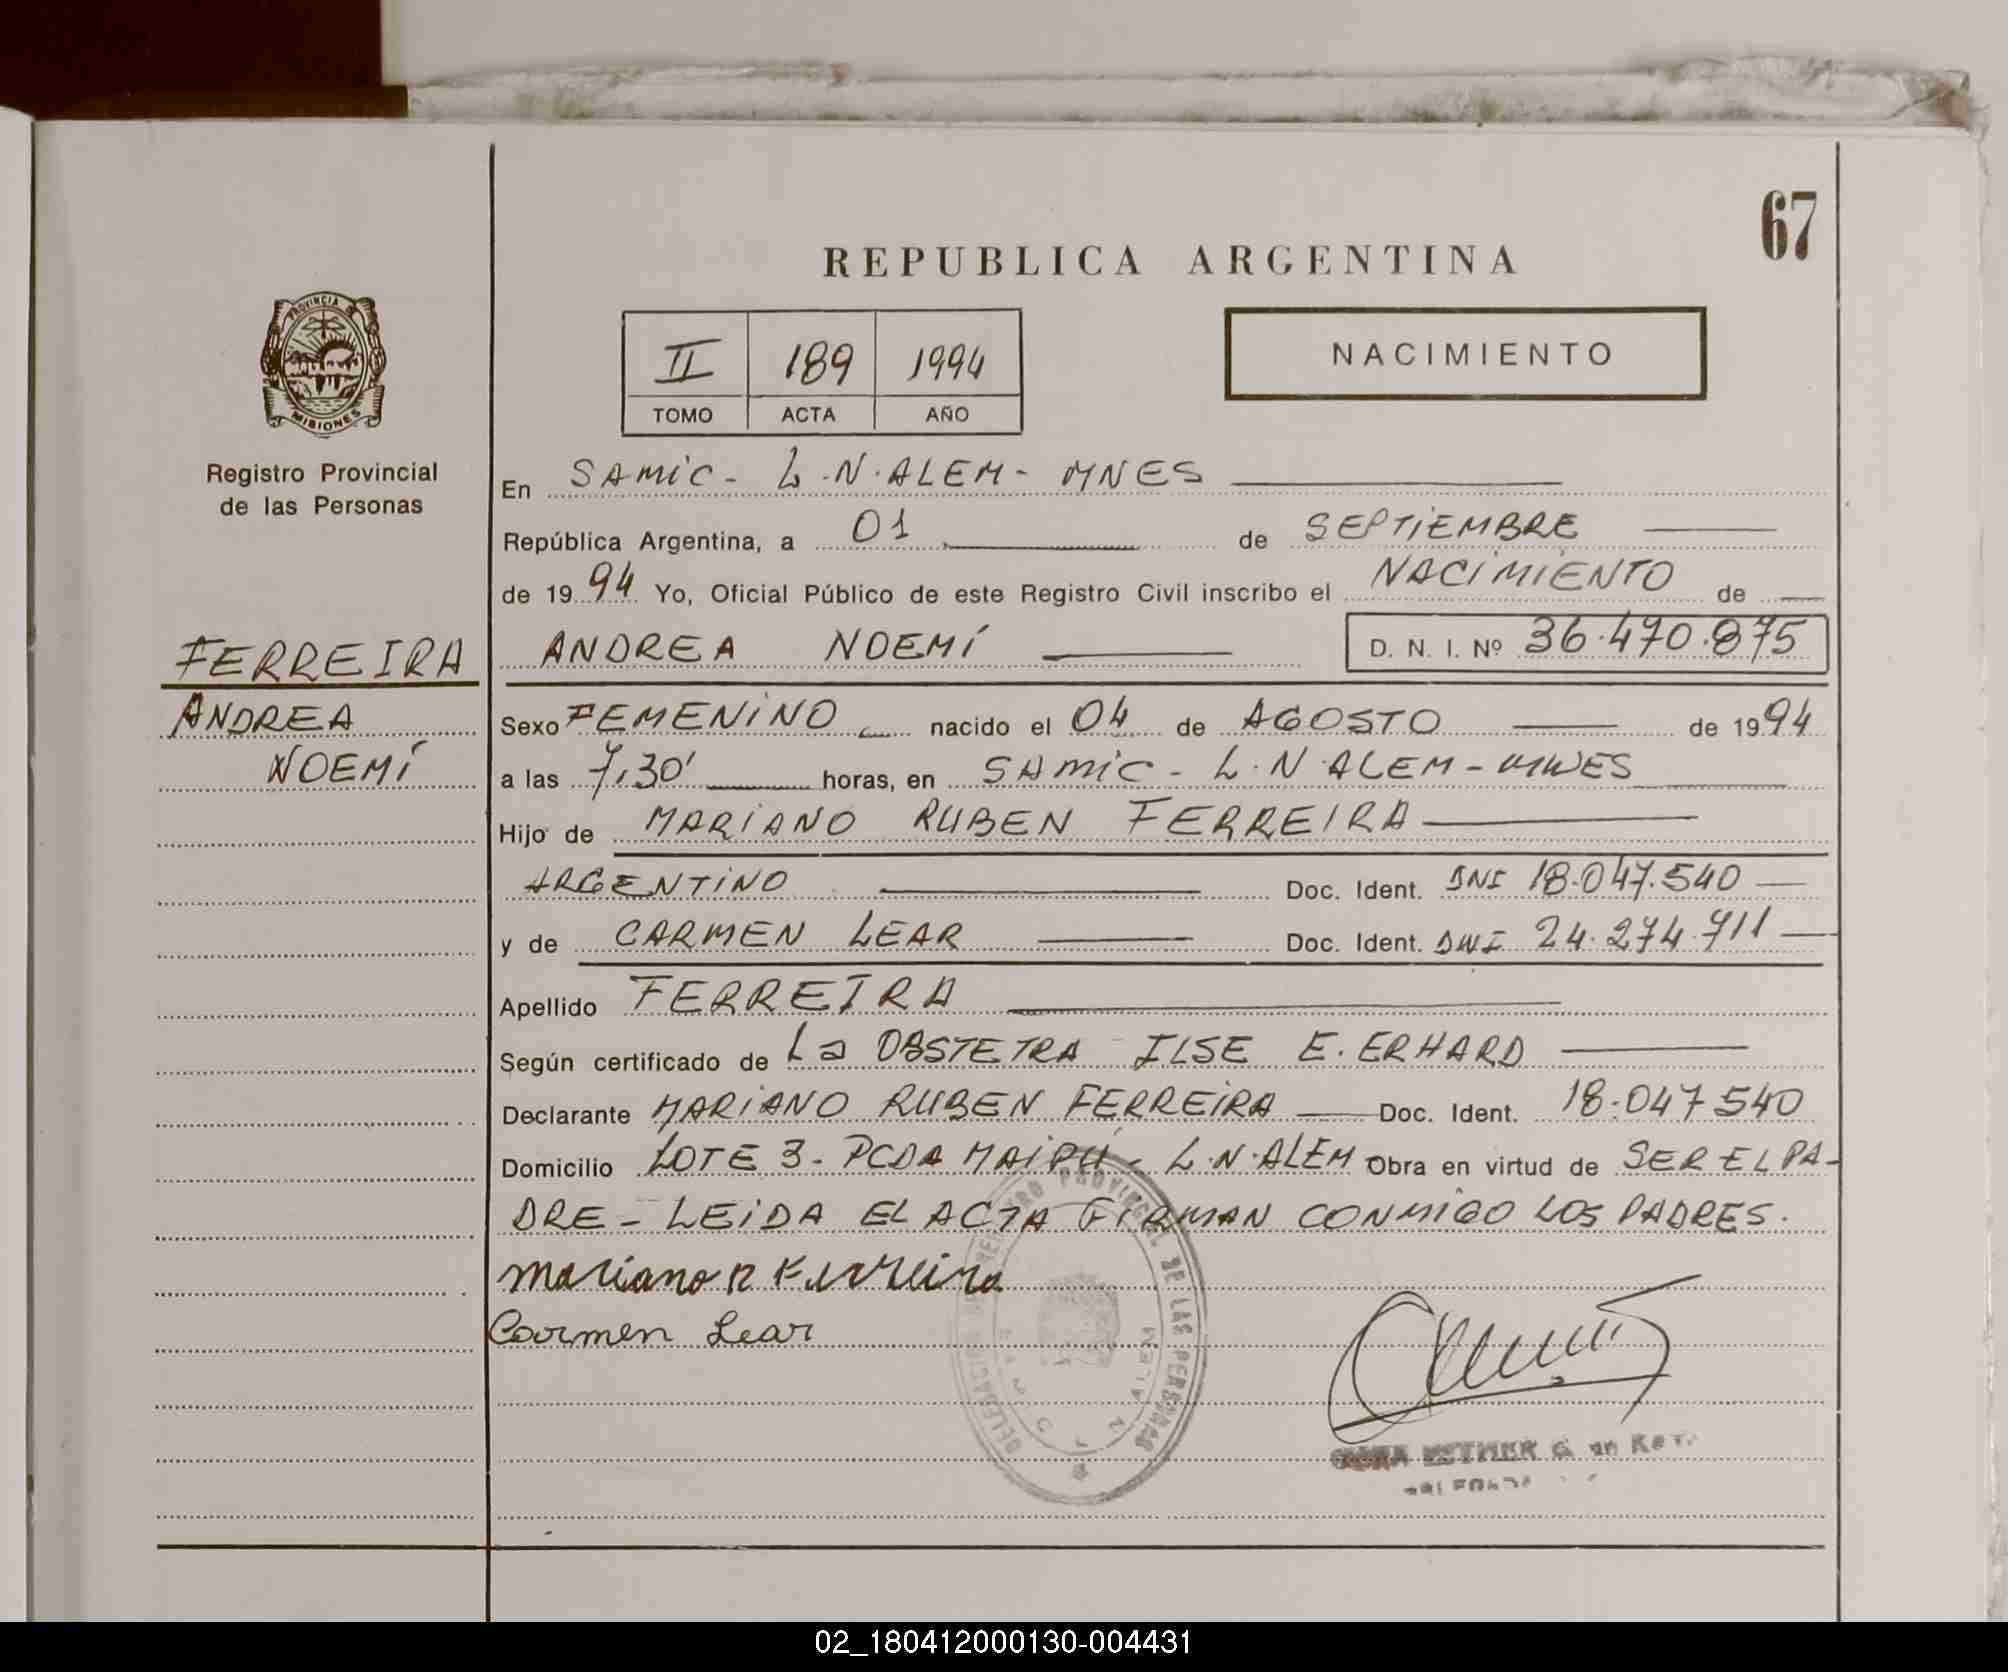 67
REPUBLICA ARGENTINA
PROVINCIA DE
MISIONES
II 189 1994
TOMO ACTA AÑO
NACIMIENTO
Registro Provincial
de las Personas
En SAMIC - L.N.ALEM - MNES
República Argentina, a 01 de SEPTIEMBRE
de 1994 Yo, Oficial Público de este Registro Civil inscribo el NACIMIENTO de
FERREIRA ANDREA NOEMÍ D. N. I. Nº 36.470.875
ANDREA Sexo FEMENINO nacido el 04 de AGOSTO de 1994
NOEMÍ a las 7,30' horas, en SAMIC - L.N.ALEM - MNES
Hijo de MARIANO RUBEN FERREIRA
ARGENTINO Doc. Ident. DNI 18.047.540
y de CARMEN LEAR Doc. Ident. DNI 24.274.711
Apellido FERREIRA
Según certificado de La OBSTETRA ILSE E. ERHARD
Declarante MARIANO RUBEN FERREIRA Doc. Ident. 18.047540
Domicilio LOTE 3 - PCDA MAIPÚ - L.N.ALEM Obra en virtud de SER EL PA-
DRE - LEIDA EL ACTA FIRMAN CONMIGO LOS PADRES.
Mariano R Ferreira
Carmen Lear
REGISTRO PROVINCIAL DE LAS PERSONAS
DELEGACION
ALEM
ESTHER G. de
02_180412000130-004431